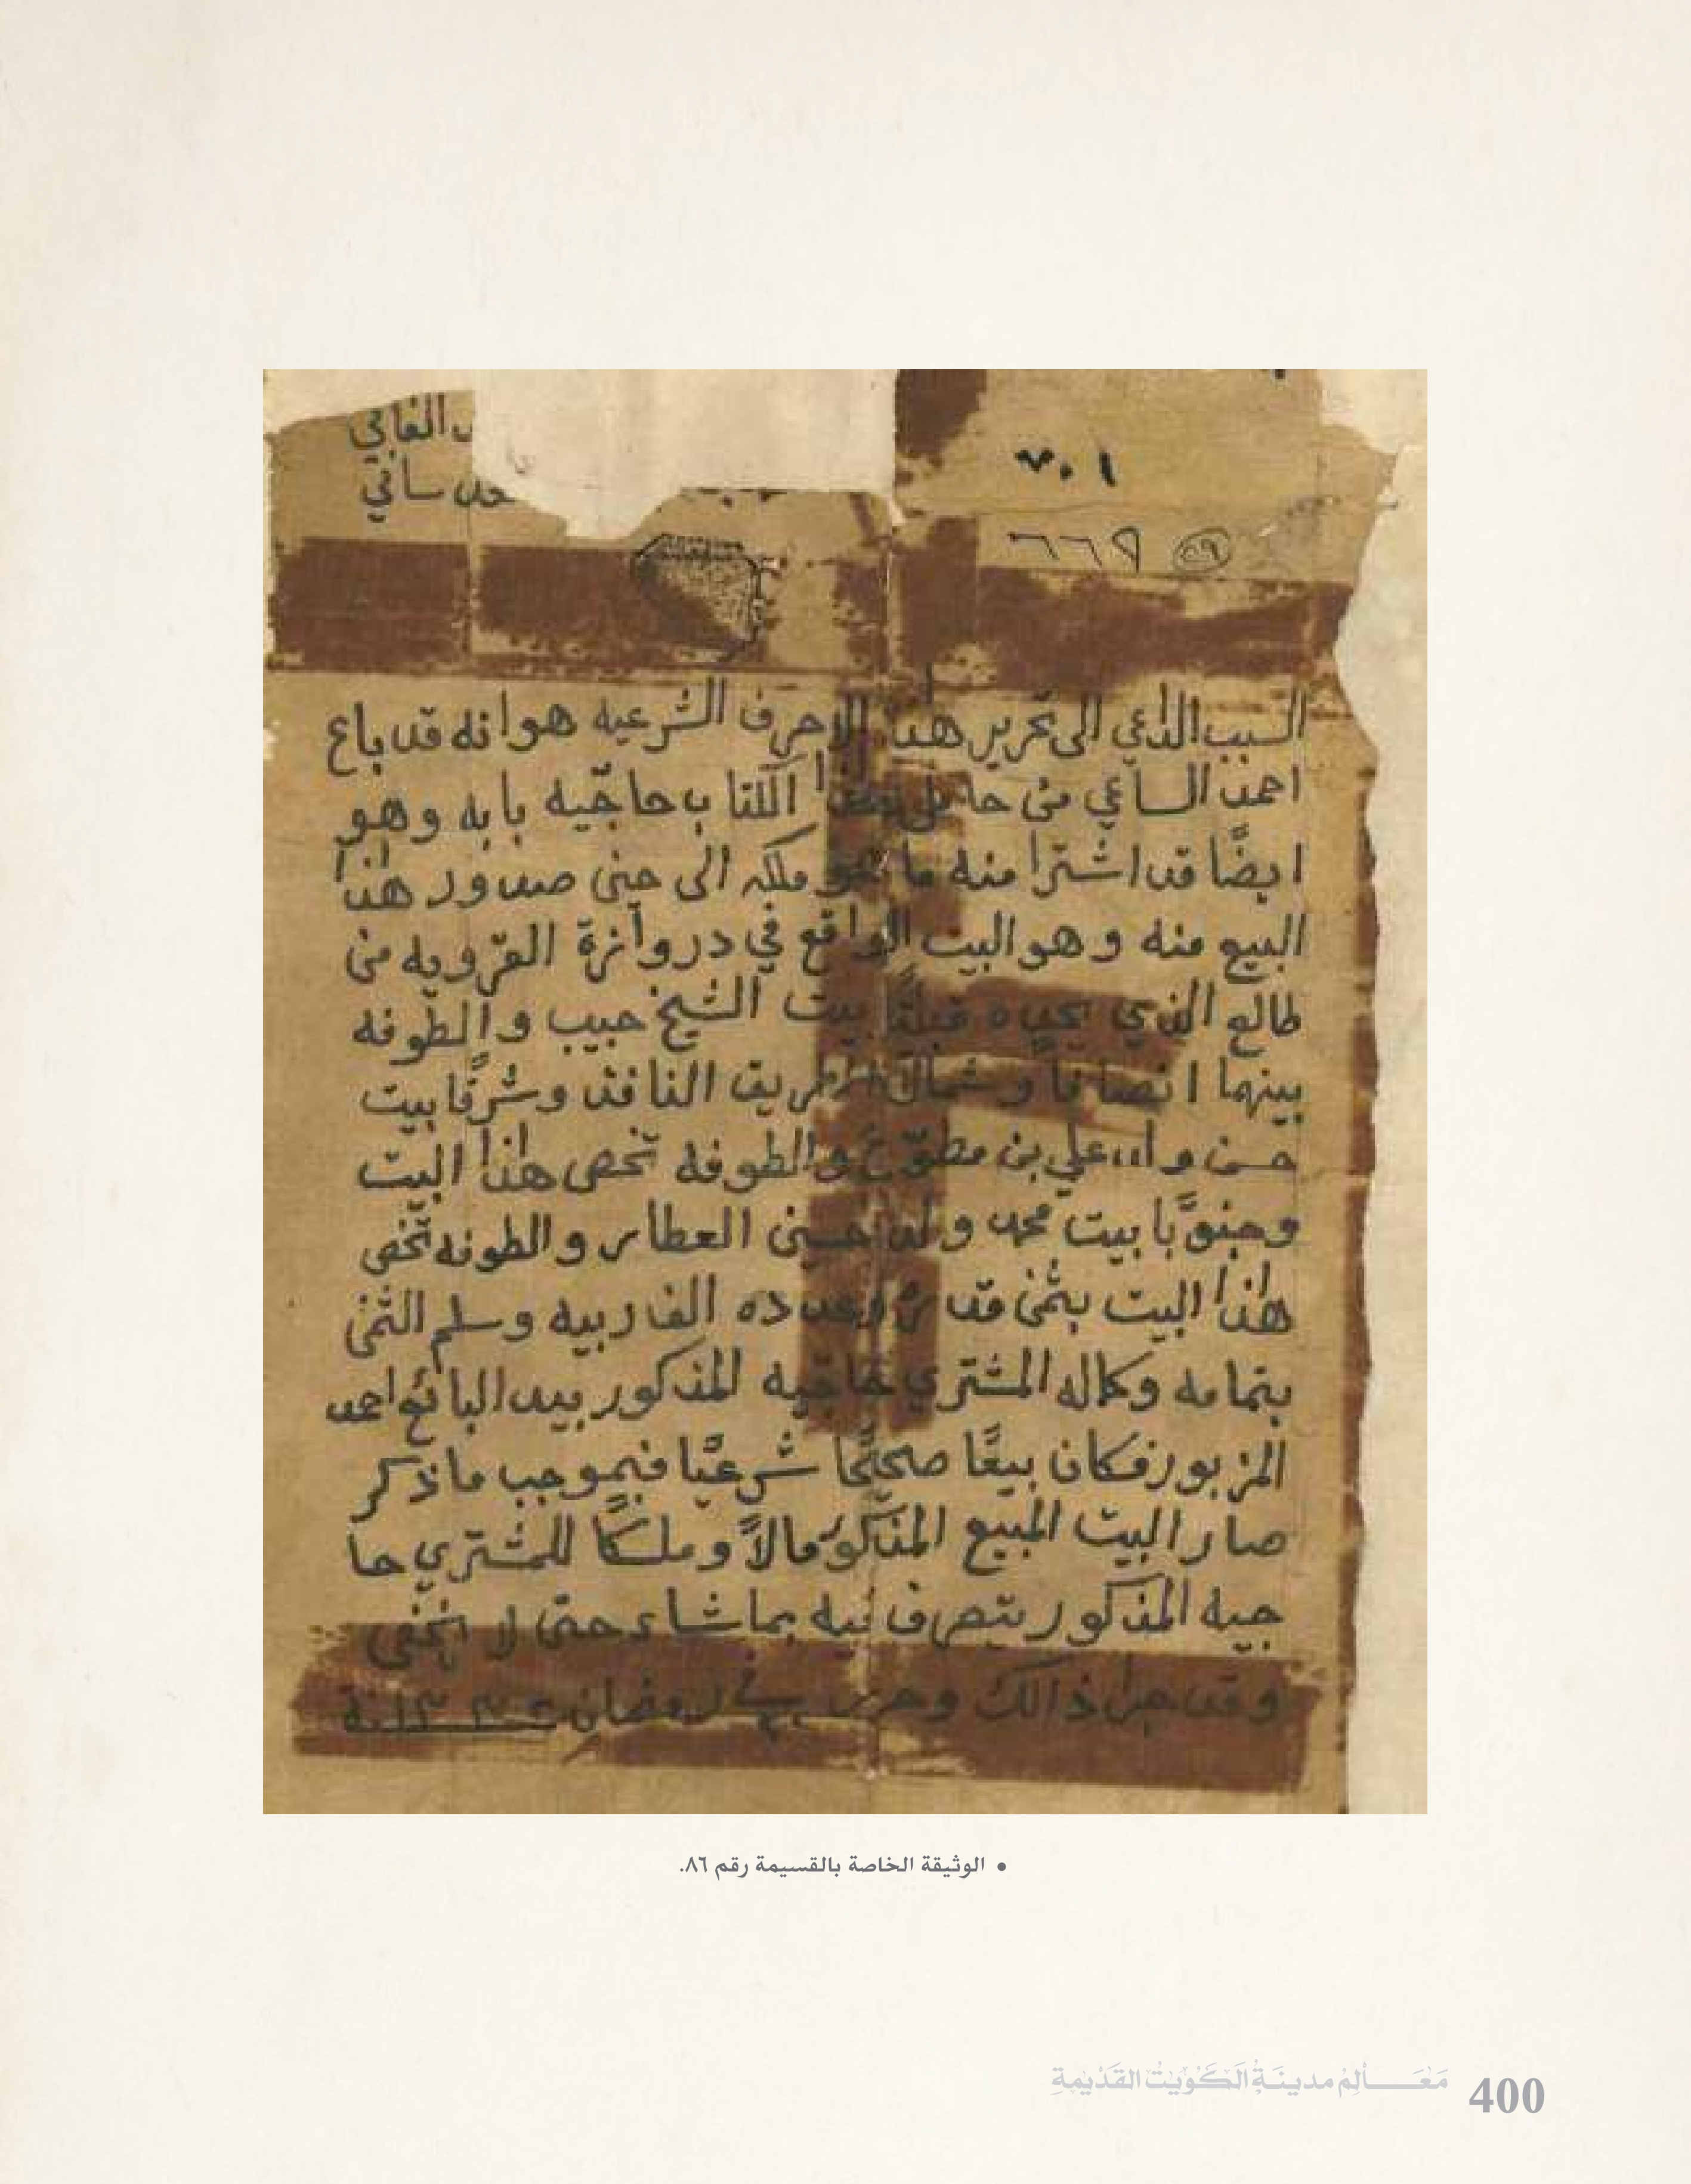 الفاني
ساني
٧٠١
٥٩ ٦٦٩
السبب الداعي الى تحرير هذه الاحرف الشرعيه هو انه قد باع
احمد الساعي من حامل هذا الكتاب حاجيه بابه وهو
ايضًا قد اشترا منه ما هو ملكه الى حين صدور هذا
البيع منه وهو البيت الواقع في دروازة القرويه من
طالع الذي يحده قبلتًا بيت الشيخ حبيب والطوفه
بينهما انصافاً وشمالاً الطريق النافذ وشرقًا بيت
حسن واد علي بن مطوّع والطوفه تخص هذا البيت
وجنوبًا بيت محمد ولد حسين العطار والطوفه تخص
هذا البيت بثمن قدره وعدده الف اربيه وسلم الثمن
بتمامه وكماله المشتري حاجيه المذكور بيد البائع احمد
المزبور فكان بيعًا صحيحًا شرعيًا فبموجب ما ذكر
صار البيت المبيع المذكور مالاً وملكًا للمشتري حا
جيه المذكور يتصرف فيه بما شاء حتى لا يخفى
وقد جرا ذالك وحرر في رمضان سنة
• الوثيقة الخاصة بالقسيمة رقم ٨٦.
مَعَالِمُ مدينَةِ الكُوَيْتِ القَدْيمَةِ 400